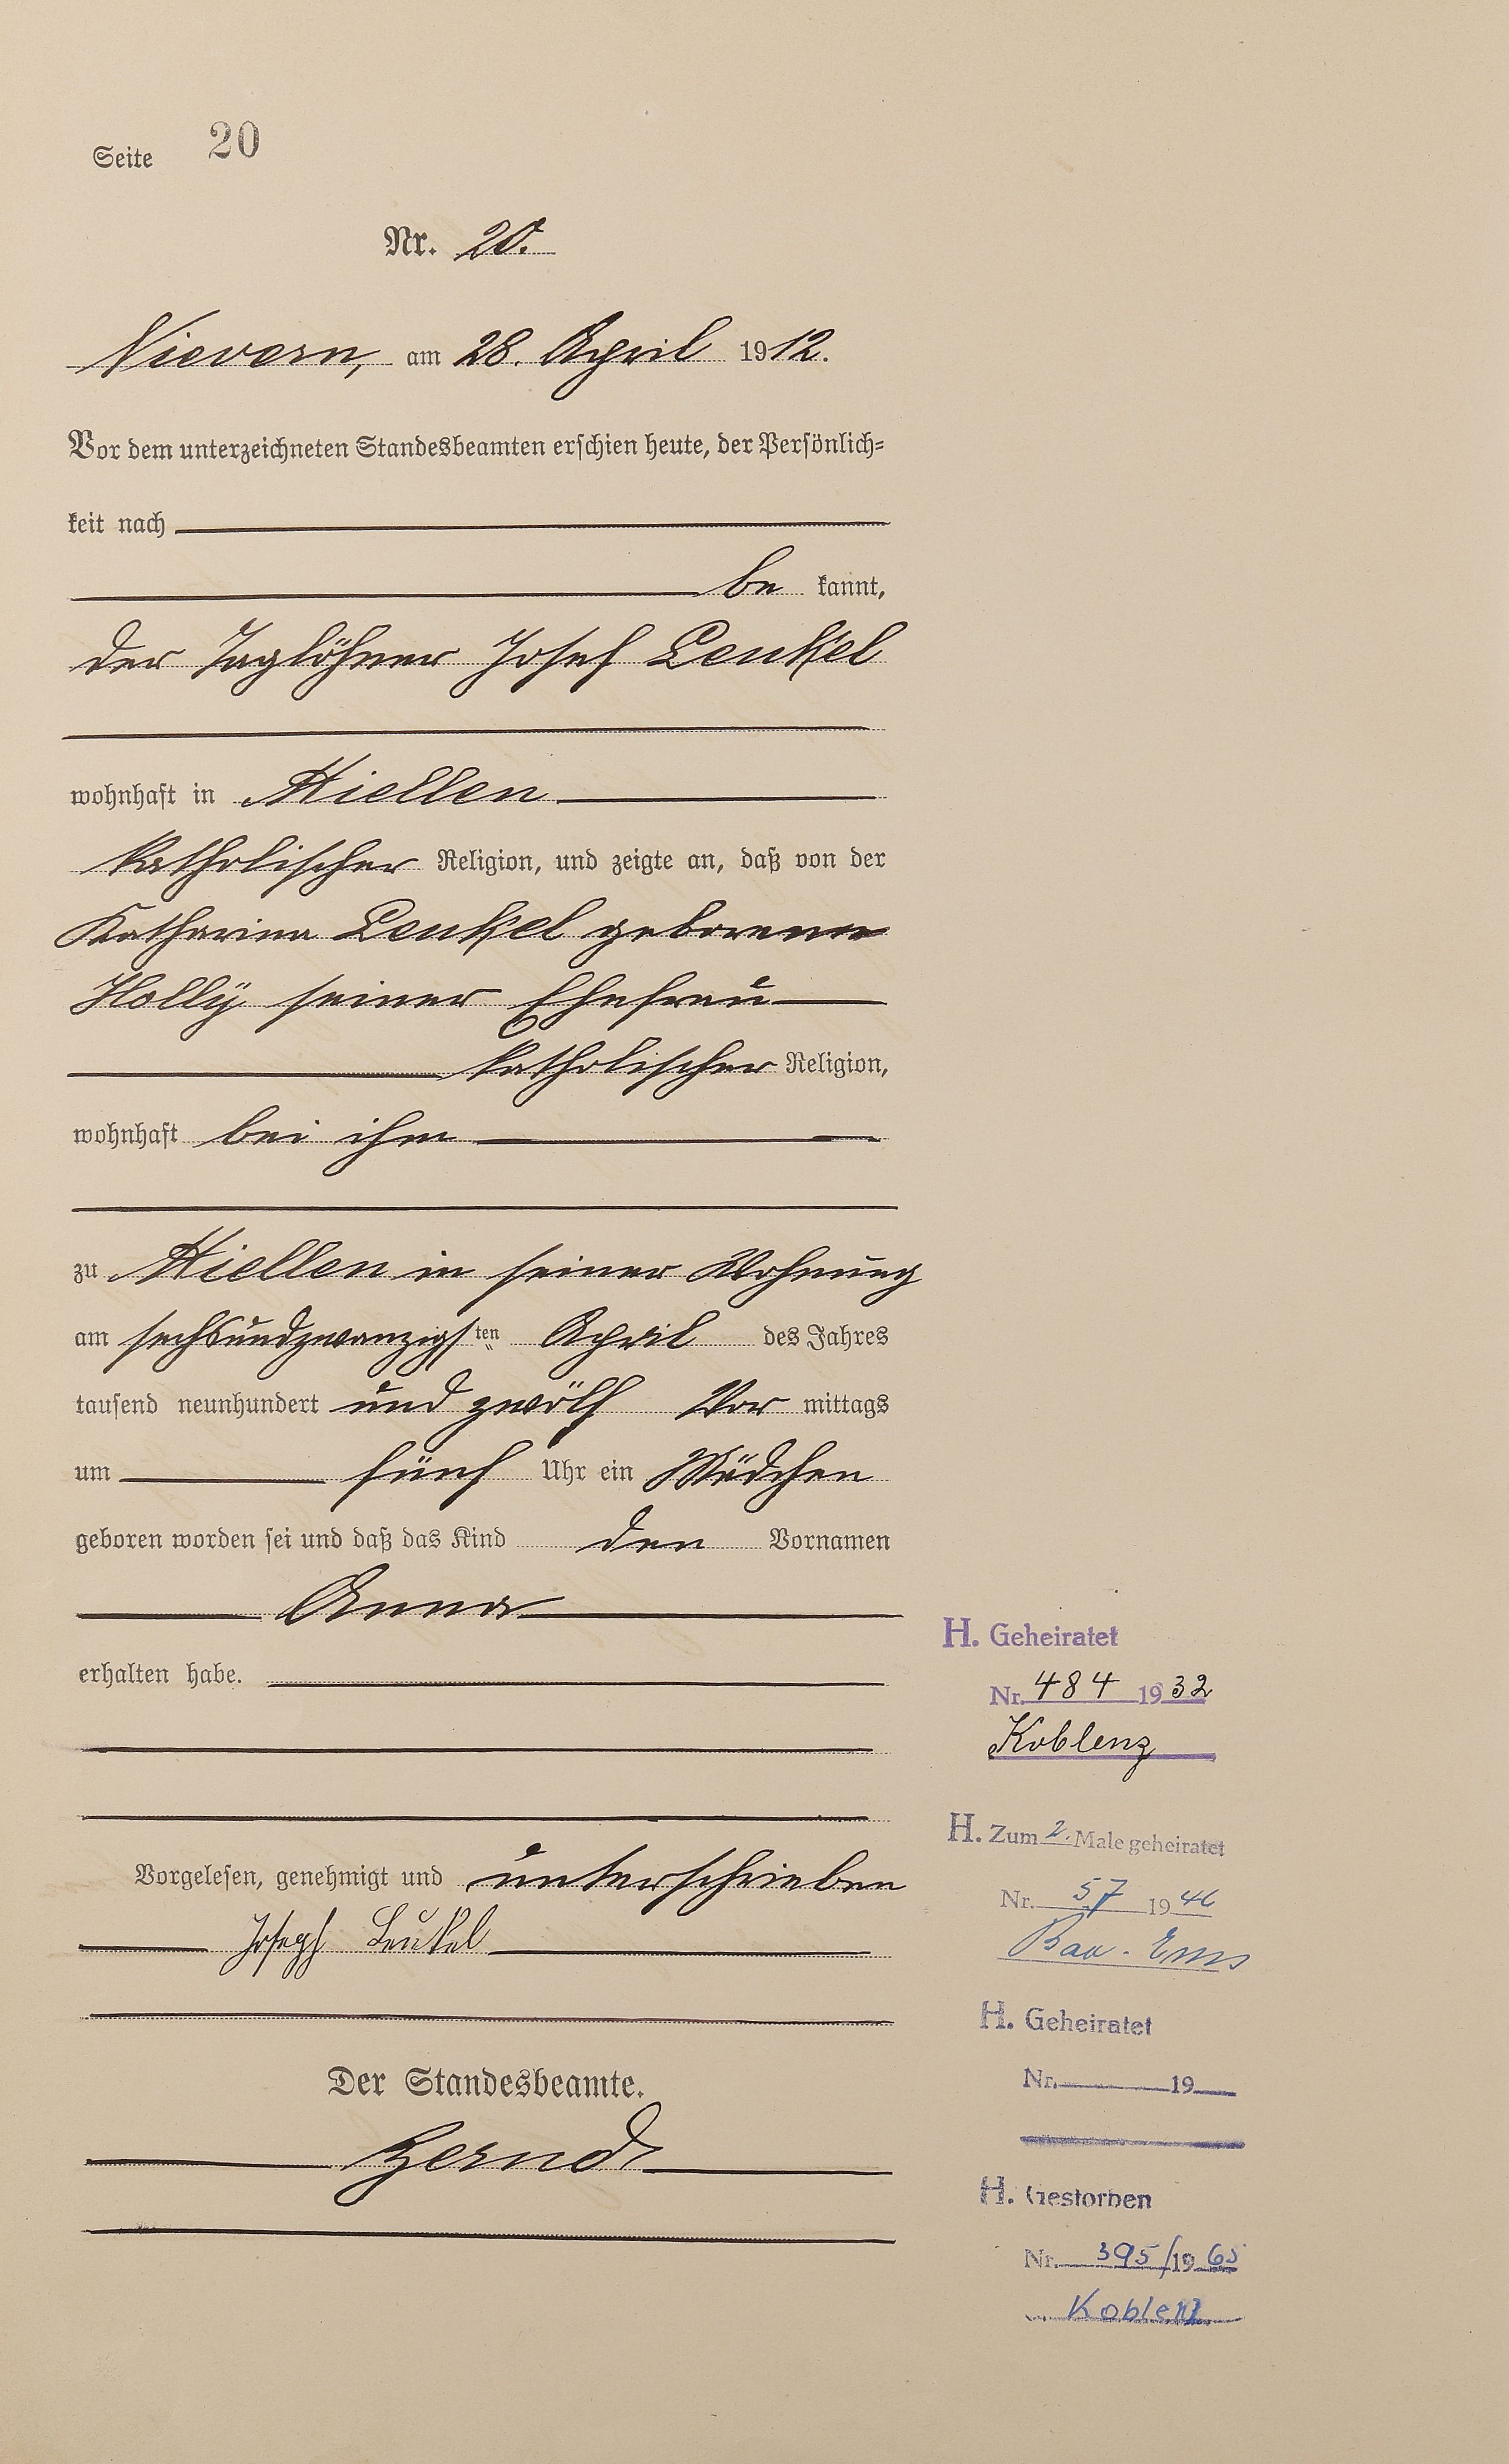 Seite 20
Nr. 20.
Nievern, am 28. April 1912.
Vor dem unterzeichneten Standesbeamten erschien heute, der Persönlich-
keit nach
be kannt,
der Taglöhner Josef Leukel
wohnhaft in Miellen
katholischer Religion, und zeigte an, daß von der
Katharina Leukel geborene
Holly seiner Ehefrau
katholischer Religion,
wohnhaft bei ihm
zu Miellen in seiner Wohnung
am sechsundzwanzigsten April des Jahres
tausend neunhundert und zwölf Vor mittags
um fünf Uhr ein Mädchen
geboren worden sei und daß das Kind den Vornamen
Anna
erhalten habe.
Vorgelesen, genehmigt und unterschrieben
Joseph Leukel
Der Standesbeamte.
H. Geheiratet
Nr. 484 1932
Koblenz
H. Zum 2. Male geheiratet
Nr. 57 1946
Bad. Ems
H. Geheiratet
Nr. 19
H. Gestorben
Nr. 395/1965
Koblenz